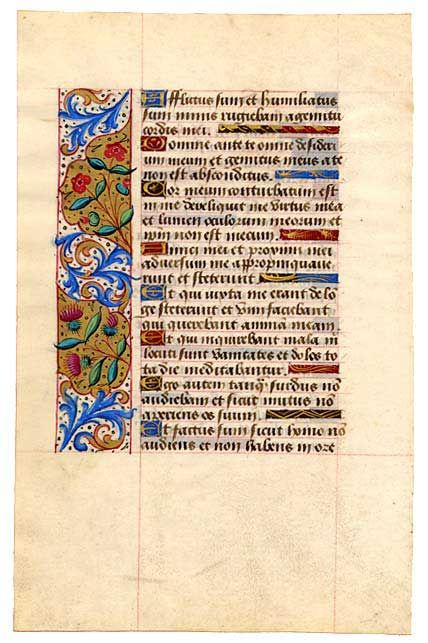 Afflictus sum et humiliatus
sum nimis rugiebam a gemitu
cordis mei.
Domine ante te omne desideri
um meum et gemitus meus a te
non est absconditus.
Cor meum conturbatum est
in me dereliquit me virtus mea
et lumen oculorum meorum et
ipm non est mecum.
Amici mei et proximi mei
adversum me appropinquave
runt et steterunt
Et qui iuxta me erant de lo
ge steterunt et vim faciebant
qui querebant anima meam
Et qui inquirebant mala in
locuti sunt vanitates et dolos to
ta die meditabantur.
Ego autem tanq surdus nō
audiebam et sicut mutus nō
aperiens os suum.
Et factus sum sicut homo nō
audiens et non habens in ore